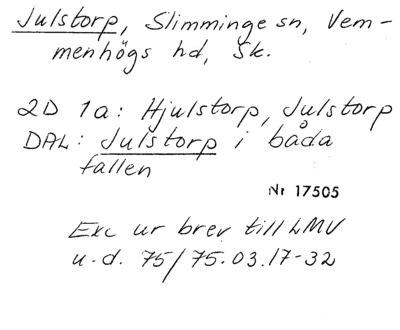 Julstorp, Slimminge sn, Vem-
menhögs hd, Sk.
2D 1a: Hjulstorp, Julstorp
DAL: Julstorp i båda
fallen
Nr 17505
Exc ur brev till LMV
u.d. 75/75.03.17-32